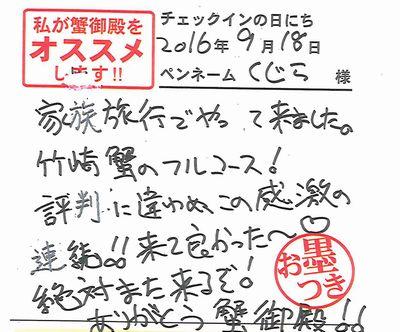 私が蟹御殿を
オススメ
します!!
チェックインの日にち
2016年9月18日
ペンネーム くじら 様
家族旅行でやって来ました。
竹崎蟹のフルコース!
評判に違わぬこの感激の
連続!!来て良かった〜♡
絶対また来るぞ!
ありがとう蟹御殿!!
お墨つき